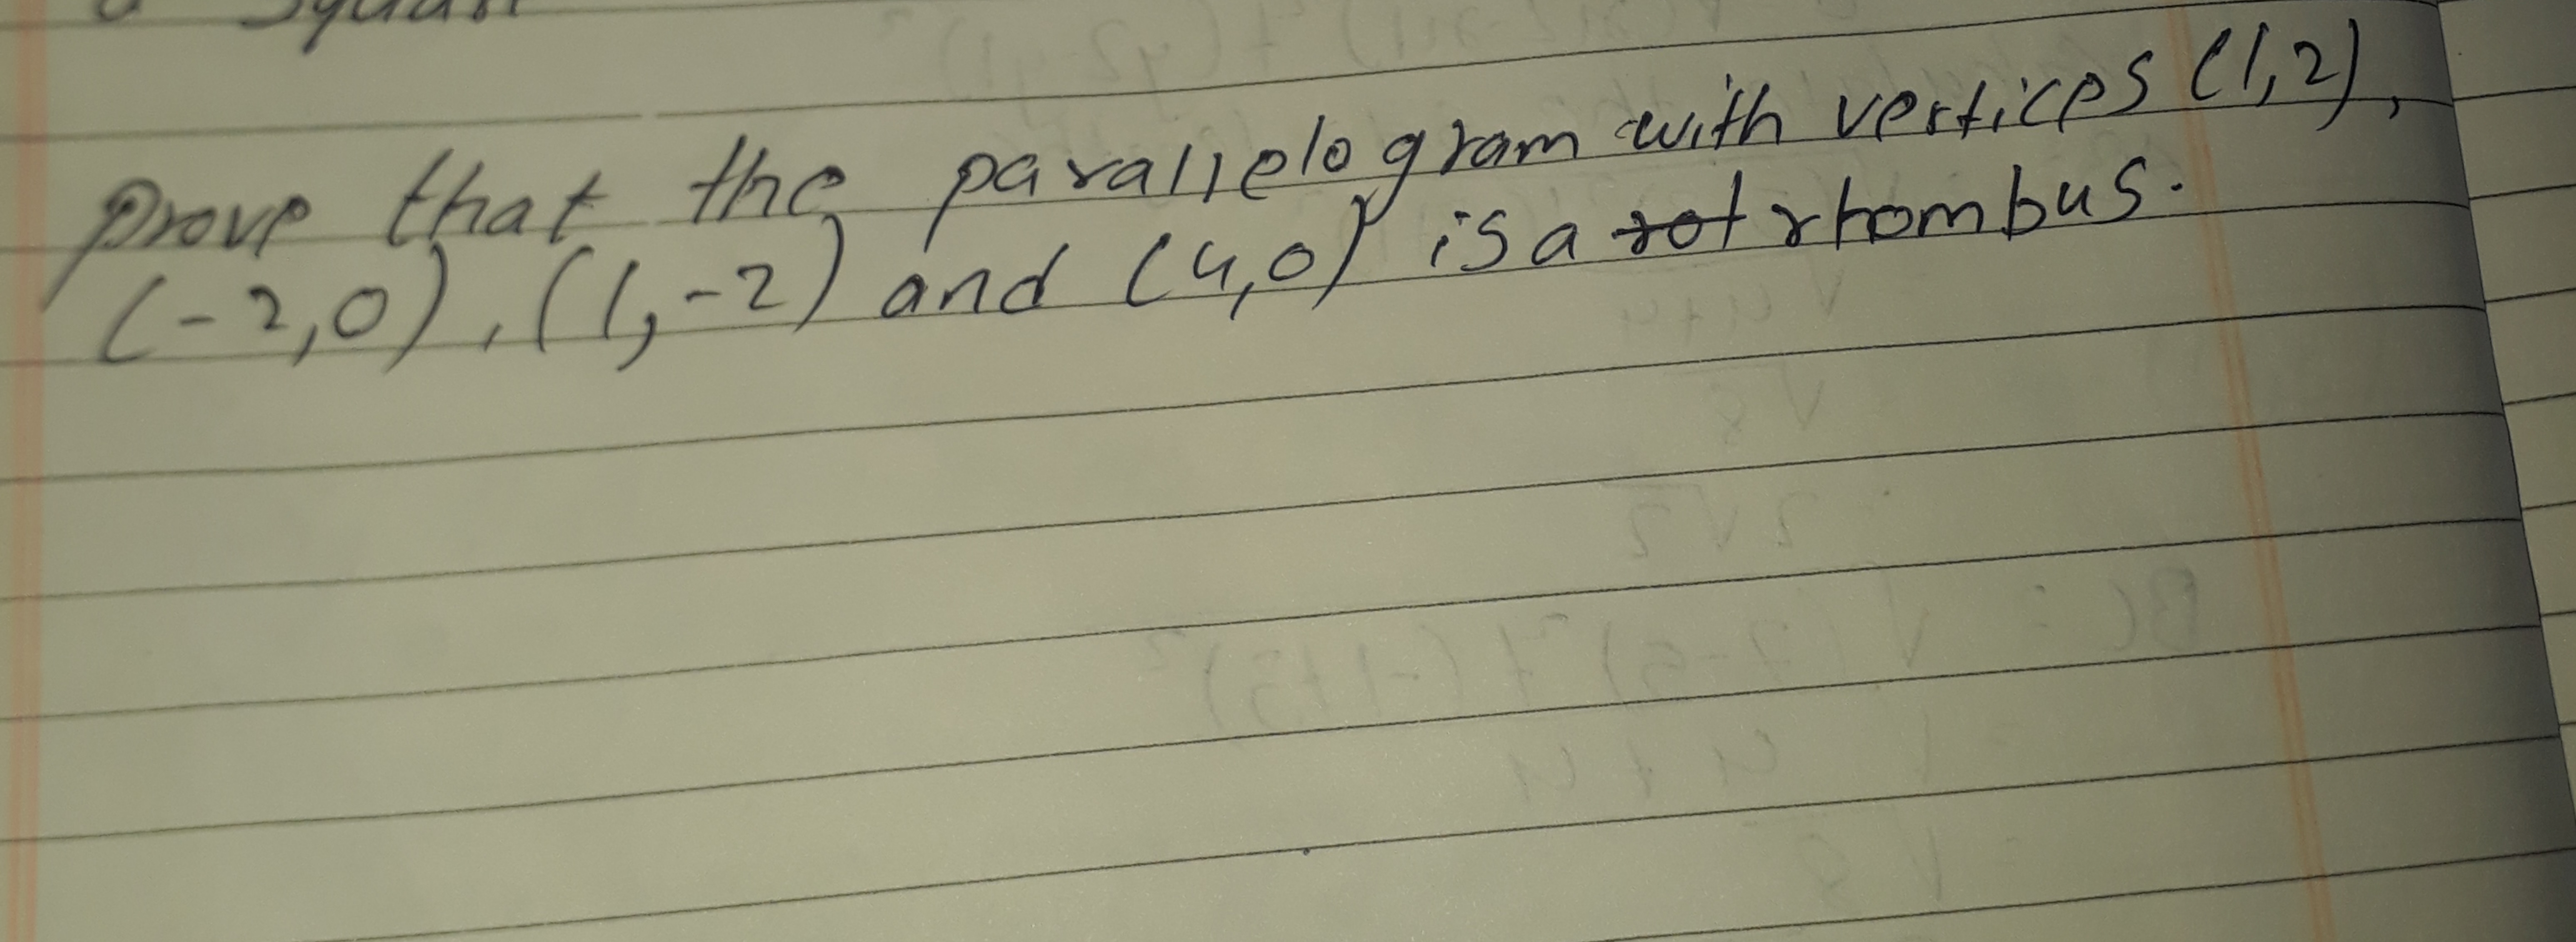 prove that the parallelogram with vertices (1,2),
(-2,0), (1,-2) and (4,0) is a rot rhombus.